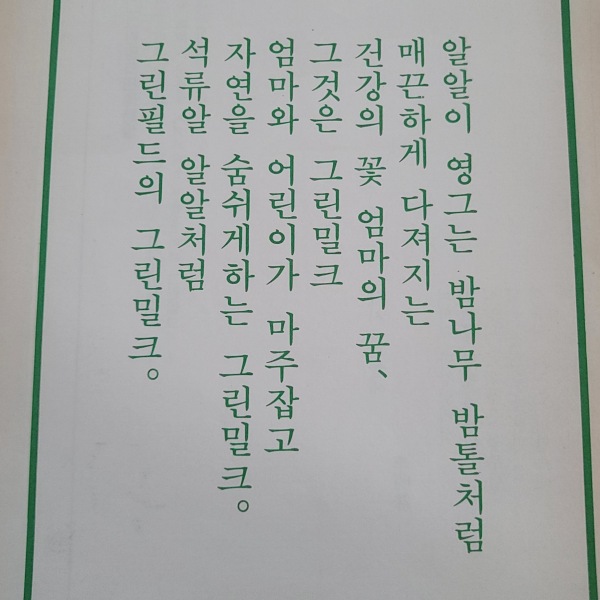 알알이 영그는 밤나무 밤톨처럼
매끈하게 다져지는
건강의 꽃 엄마의 꿈、
그것은 그린밀크
엄마와 어린이가 마주잡고
자연을 숨쉬게하는 그린밀크。
석류알 알알처럼
그린필드의 그린밀크。